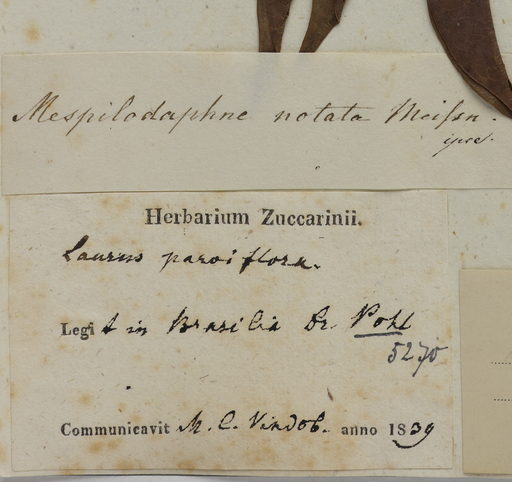 Mespilodaphne notata Meissn.
ipse.
Herbarium Zuccarinii.
Laurus parviflora.
Legit in Brasilia Dr. Pohl
5270
Communicavit M. C. Vindob. anno 1839